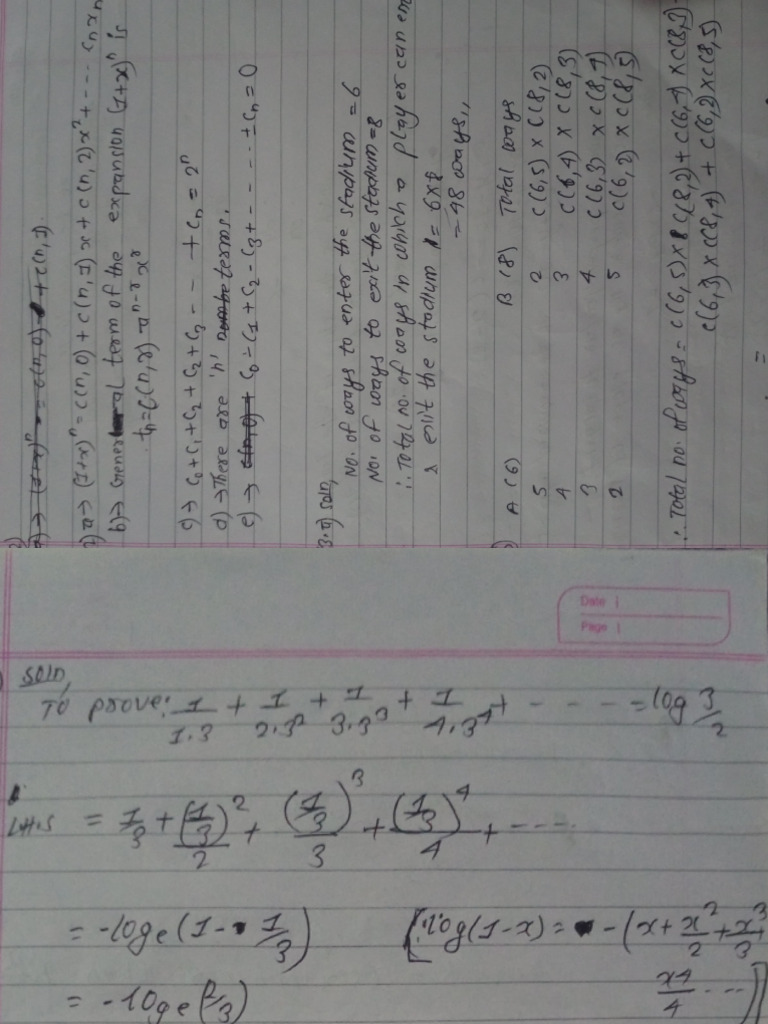 a) → (1+x)ⁿ = c(n,0) + c(n,1)
a → (1+x)ⁿ = c(n,0) + c(n,1)x + c(n,2)x² + --- cₙxₙ
b) → General term of the expansion (1+x)ⁿ is
tₙ = C(n,r) aⁿ⁻ʳ xʳ
c) → C₀ + C₁ + C₂ + C₃ - - - + Cₙ = 2ⁿ
d) → There are 'n' terms.
e) → C₀ - C₁ + C₂ - C₃ + - - - - ± Cₙ = 0
3. a) Soln,
No. of ways to enter the stadium = 6
No. of ways to exit the stadium = 8
∴ Total no. of ways in which a player can en
& exit the stadium = 6×8
= 48 ways,,
A (6) B (8) Total ways
5 2 c(6,5) × c(8,2)
4 3 c(6,4) × c(8,3)
3 4 c(6,3) × c(8,4)
2 5 c(6,2) × c(8,5)
∴ Total no. of ways = c(6,5) × c(8,2) + c(6,4) × c(8,3)
c(6,3) × c(8,4) + c(6,2) × c(8,5)
=
Date |
Page |
Soln,
To prove: 1/1.3 + 1/2.3² + 1/3.3³ + 1/4.3⁴ + - - - - = log 3/2
L.H.S = 1/3 + (1/3)²/2 + (1/3)³/3 + (1/3)⁴/4 + - - - -
= -loge(1 - 1/3) [∵ log(1-x) = -(x + x²/2 + x³/3
= -loge(2/3) x4/4 ---)]